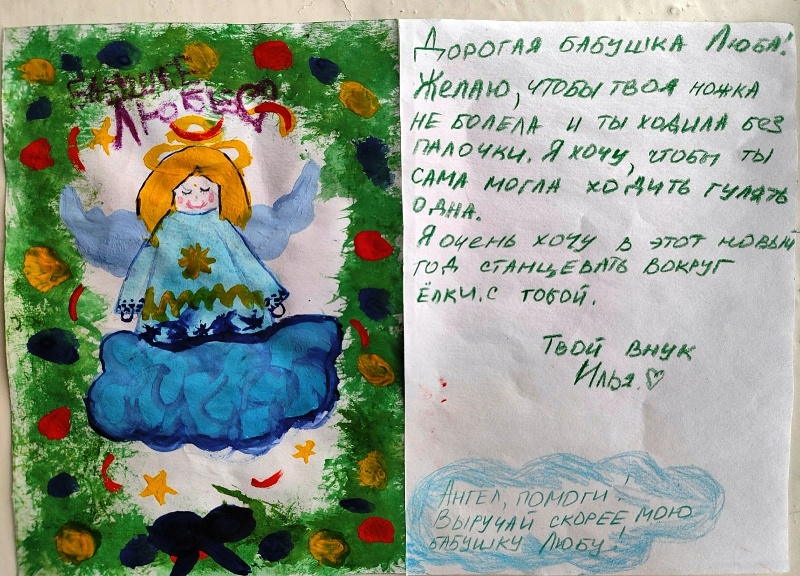 Бабушке
Любе
Дорогая бабушка Люба!
Желаю, чтобы твоя ножка
не болела и ты ходила без
палочки. Я хочу, чтобы ты
сама могла ходить гулять
одна.
Я очень хочу в этот новый
год станцевать вокруг
ёлки с тобой.
Твой внук
Илья.
Ангел, помоги!
Выручай скорее мою
бабушку Любу!